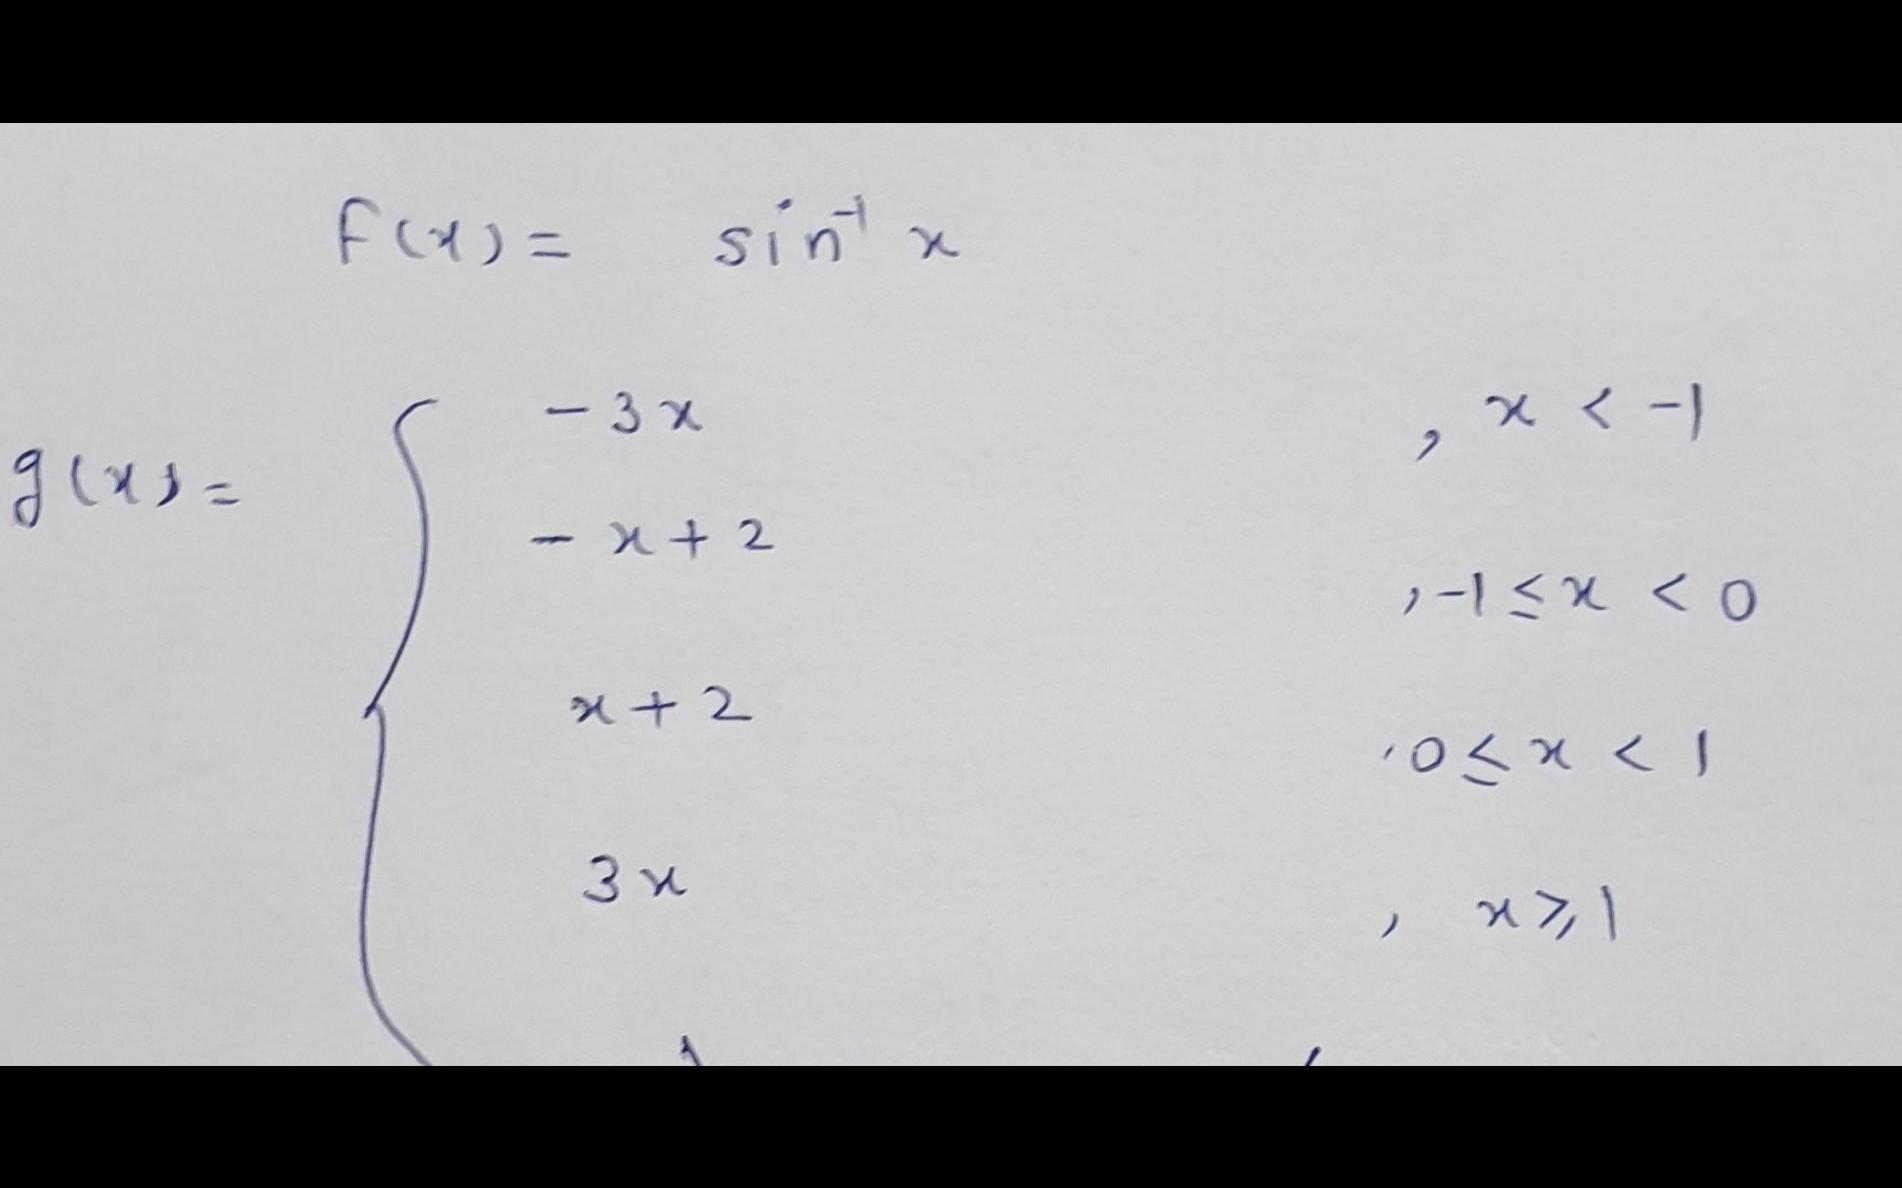 f(x) = sin⁻¹ x
g(x) = { -3x , x < -1
- x + 2 , -1 ≤ x < 0
x + 2 , 0 ≤ x < 1
3x , x ≥ 1